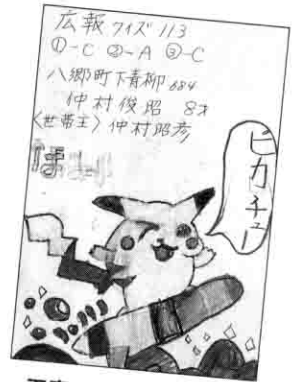 広報クイズ113
①-C ②-A ③-C
八郷町下青柳684
仲村俊昭 8才
〈世帯主〉仲村昭彦
ピカチュー